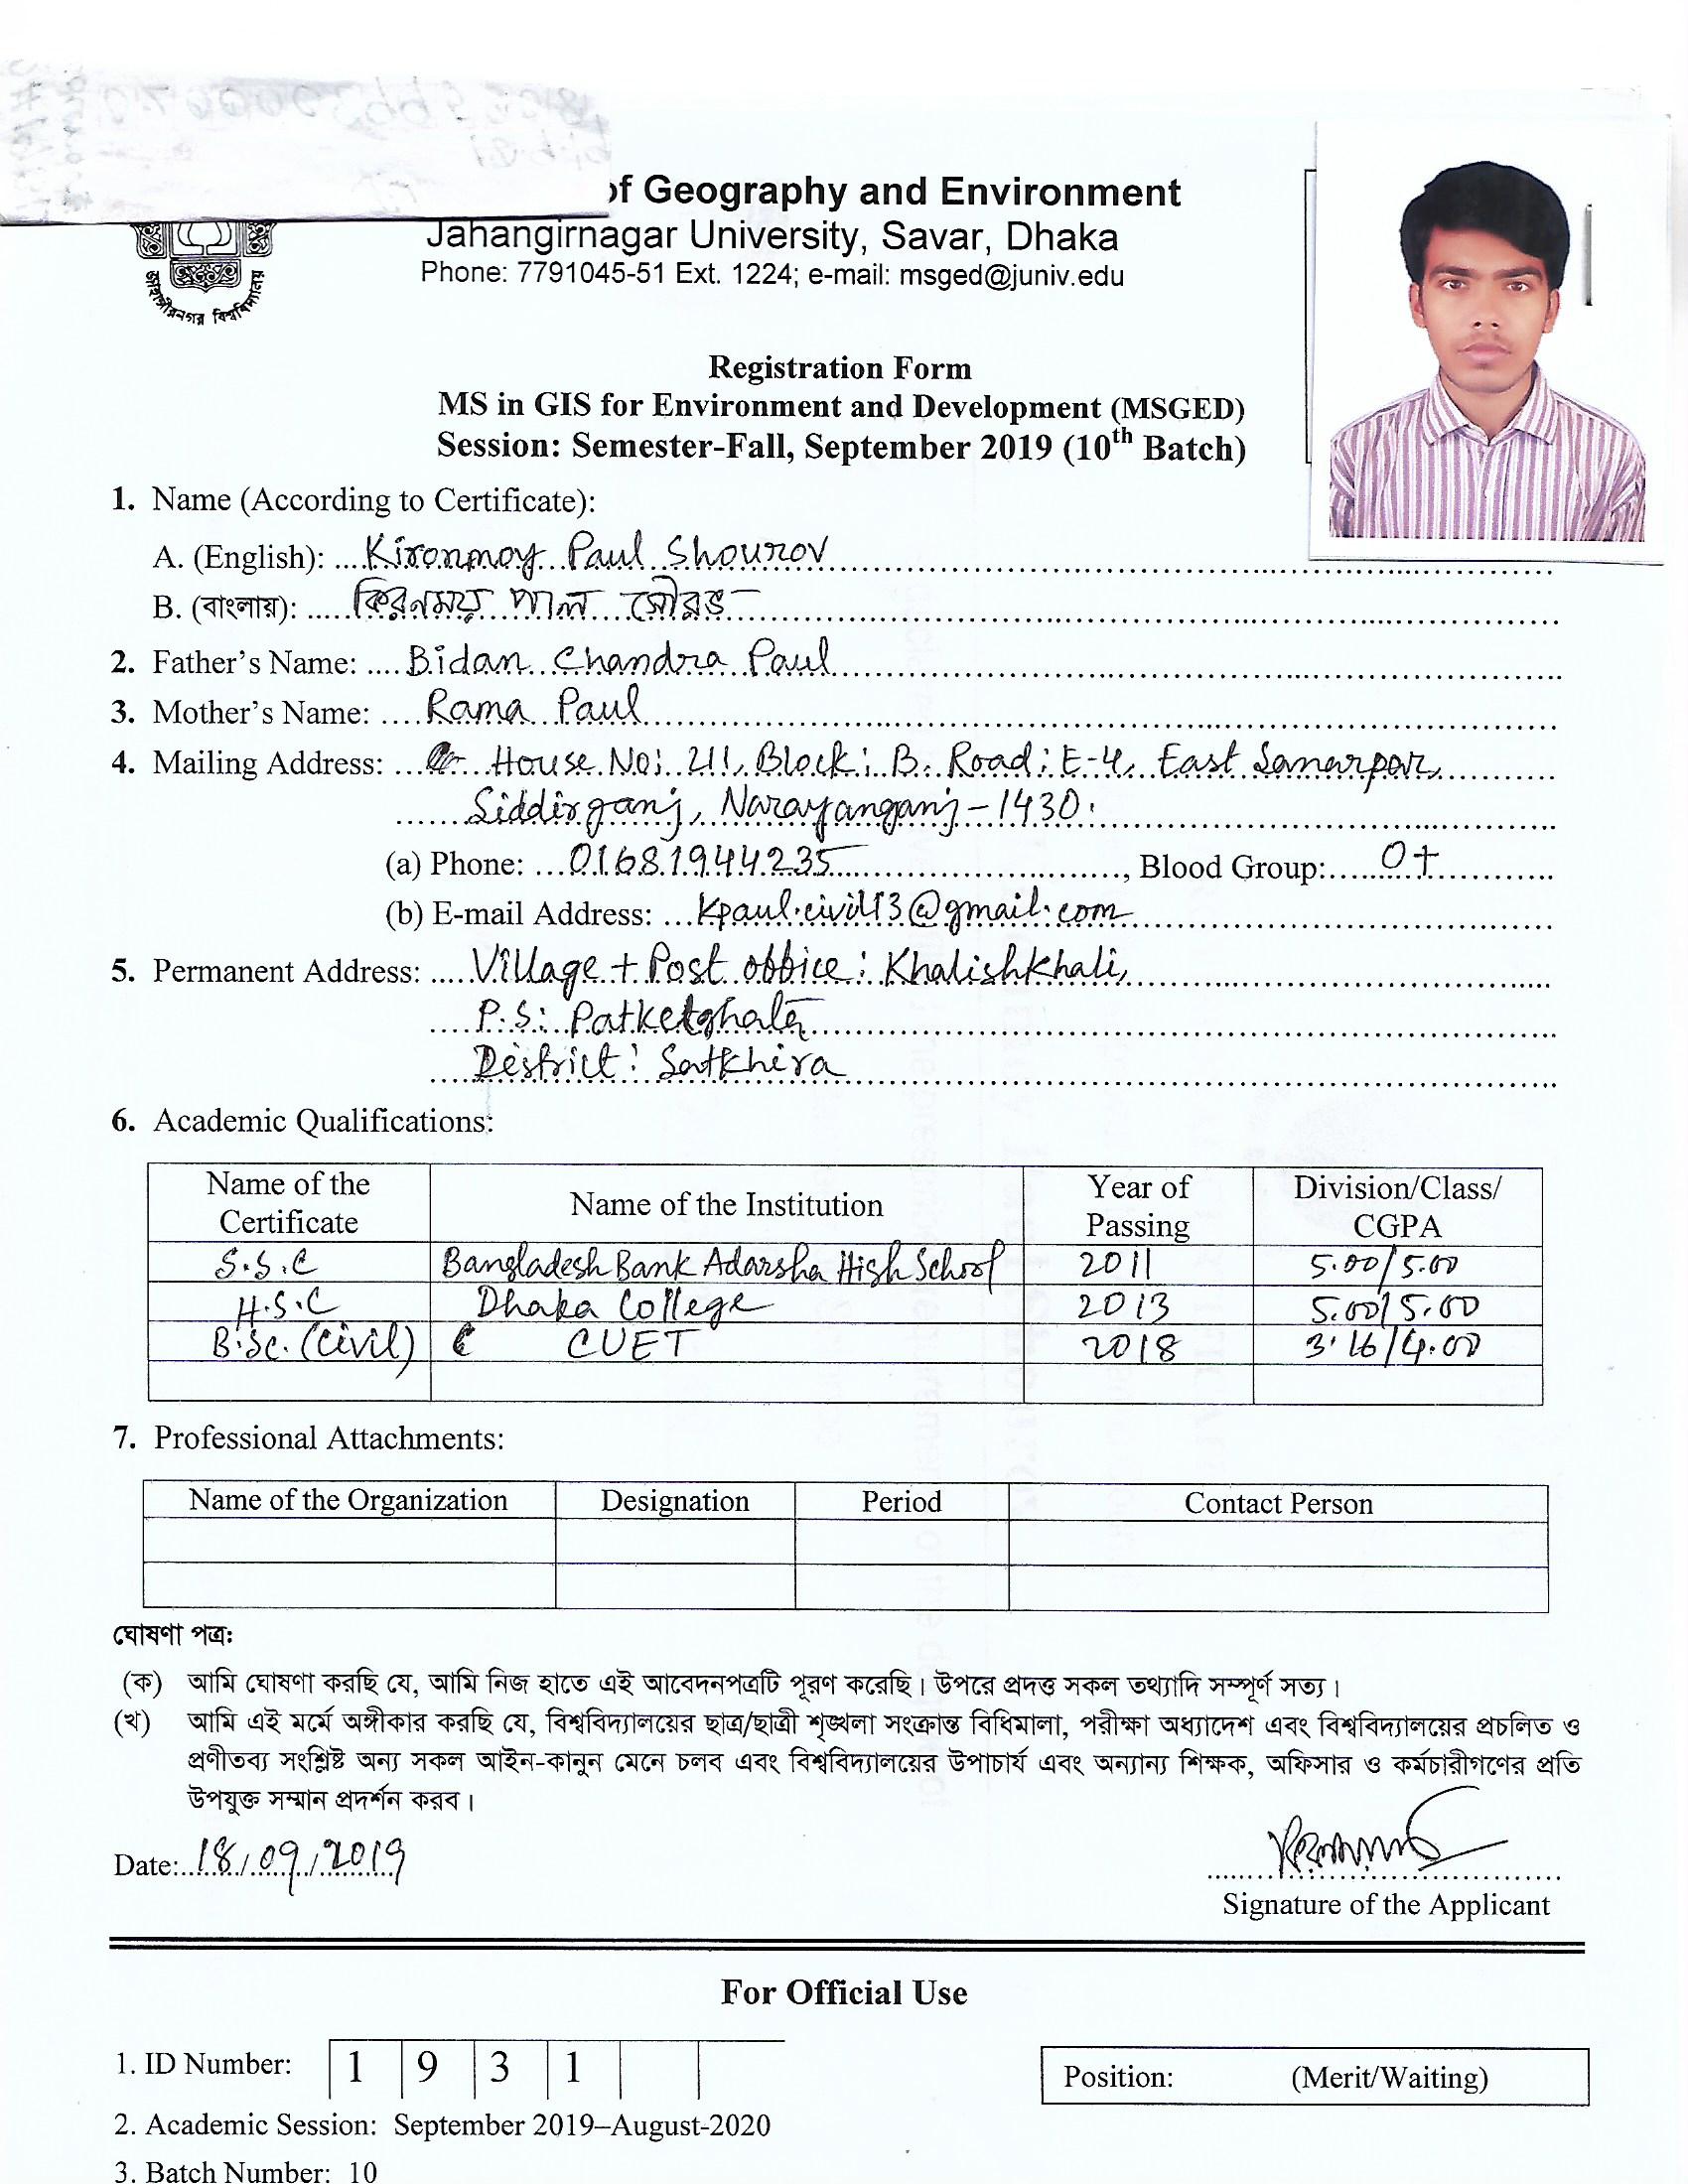 of Geography and Environment
Jahangirnagar University, Savar, Dhaka
Phone: 7791045-51 Ext. 1224; e-mail: msged@juniv.edu
জাহাঙ্গীরনগর বিশ্ববিদ্যালয়
Registration Form
MS in GIS for Environment and Development (MSGED)
Session: Semester-Fall, September 2019 (10th Batch)
1. Name (According to Certificate):
A. (English): Kironmoy Paul Shourov
B. (বাংলায়): কিরনময় পাল সৌরভ
2. Father's Name: Bidan Chandra Paul
3. Mother's Name: Rama Paul
4. Mailing Address: House No: 211, Block: B, Road: E-4, East Sanarpar,
Siddirganj, Narayanganj-1430.
(a) Phone: 01681944235, Blood Group: O+
(b) E-mail Address: kpaul.civil13@gmail.com
5. Permanent Address: Village + Post office: Khalishkhali,
P.S: Patkelghata
District: Satkhira
6. Academic Qualifications:
Name of the Certificate Name of the Institution Year of Passing Division/Class/ CGPA
S.S.C Bangladesh Bank Adarsha High School 2011 5.00/5.00
H.S.C Dhaka College 2013 5.00/5.00
B.Sc. (Civil) CUET 2018 3.16/4.00
7. Professional Attachments:
Name of the Organization Designation Period Contact Person
ঘোষণা পত্রঃ
(ক) আমি ঘোষণা করছি যে, আমি নিজ হাতে এই আবেদনপত্রটি পূরণ করেছি। উপরে প্রদত্ত সকল তথ্যাদি সম্পূর্ণ সত্য।
(খ) আমি এই মর্মে অঙ্গীকার করছি যে, বিশ্ববিদ্যালয়ের ছাত্র/ছাত্রী শৃঙ্খলা সংক্রান্ত বিধিমালা, পরীক্ষা অধ্যাদেশ এবং বিশ্ববিদ্যালয়ের প্রচলিত ও
প্রণীতব্য সংশ্লিষ্ট অন্য সকল আইন-কানুন মেনে চলব এবং বিশ্ববিদ্যালয়ের উপাচার্য এবং অন্যান্য শিক্ষক, অফিসার ও কর্মচারীগণের প্রতি
উপযুক্ত সম্মান প্রদর্শন করব।
Date: 18/09/2019
Signature of the Applicant
For Official Use
1. ID Number: 1 9 3 1
Position: (Merit/Waiting)
2. Academic Session: September 2019–August-2020
3. Batch Number: 10